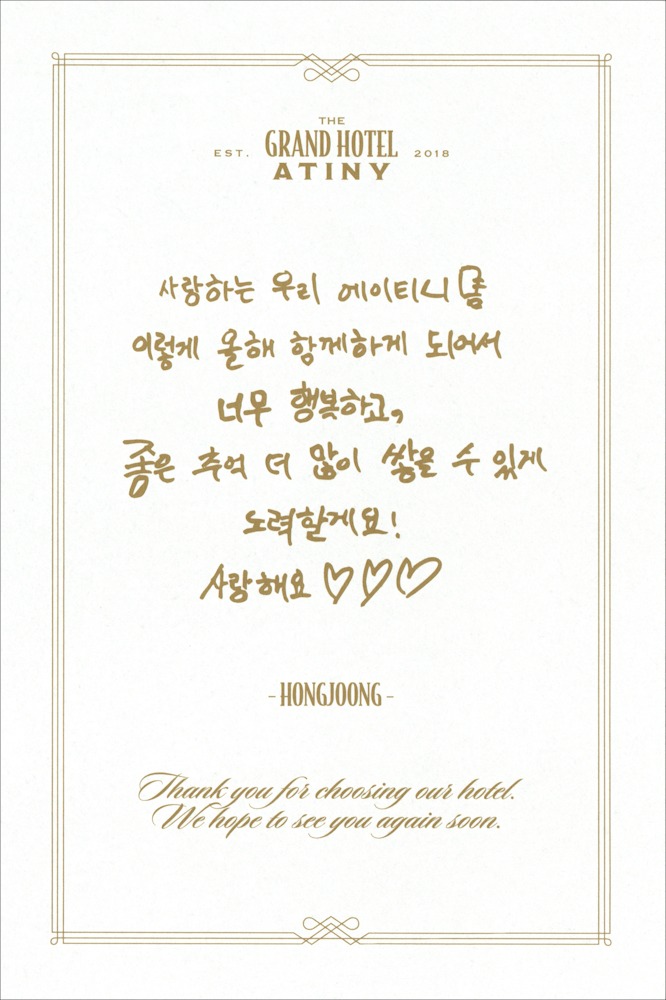 THE
EST. GRAND HOTEL 2018
ATINY
사랑하는 우리 에이티니
이렇게 올해 함께하게 되어서
너무 행복하고,
좋은 추억 더 많이 쌓을 수 있게
노력할게요!
사랑해요 ♡♡♡
- HONGJOONG -
Thank you for choosing our hotel.
We hope to see you again soon.